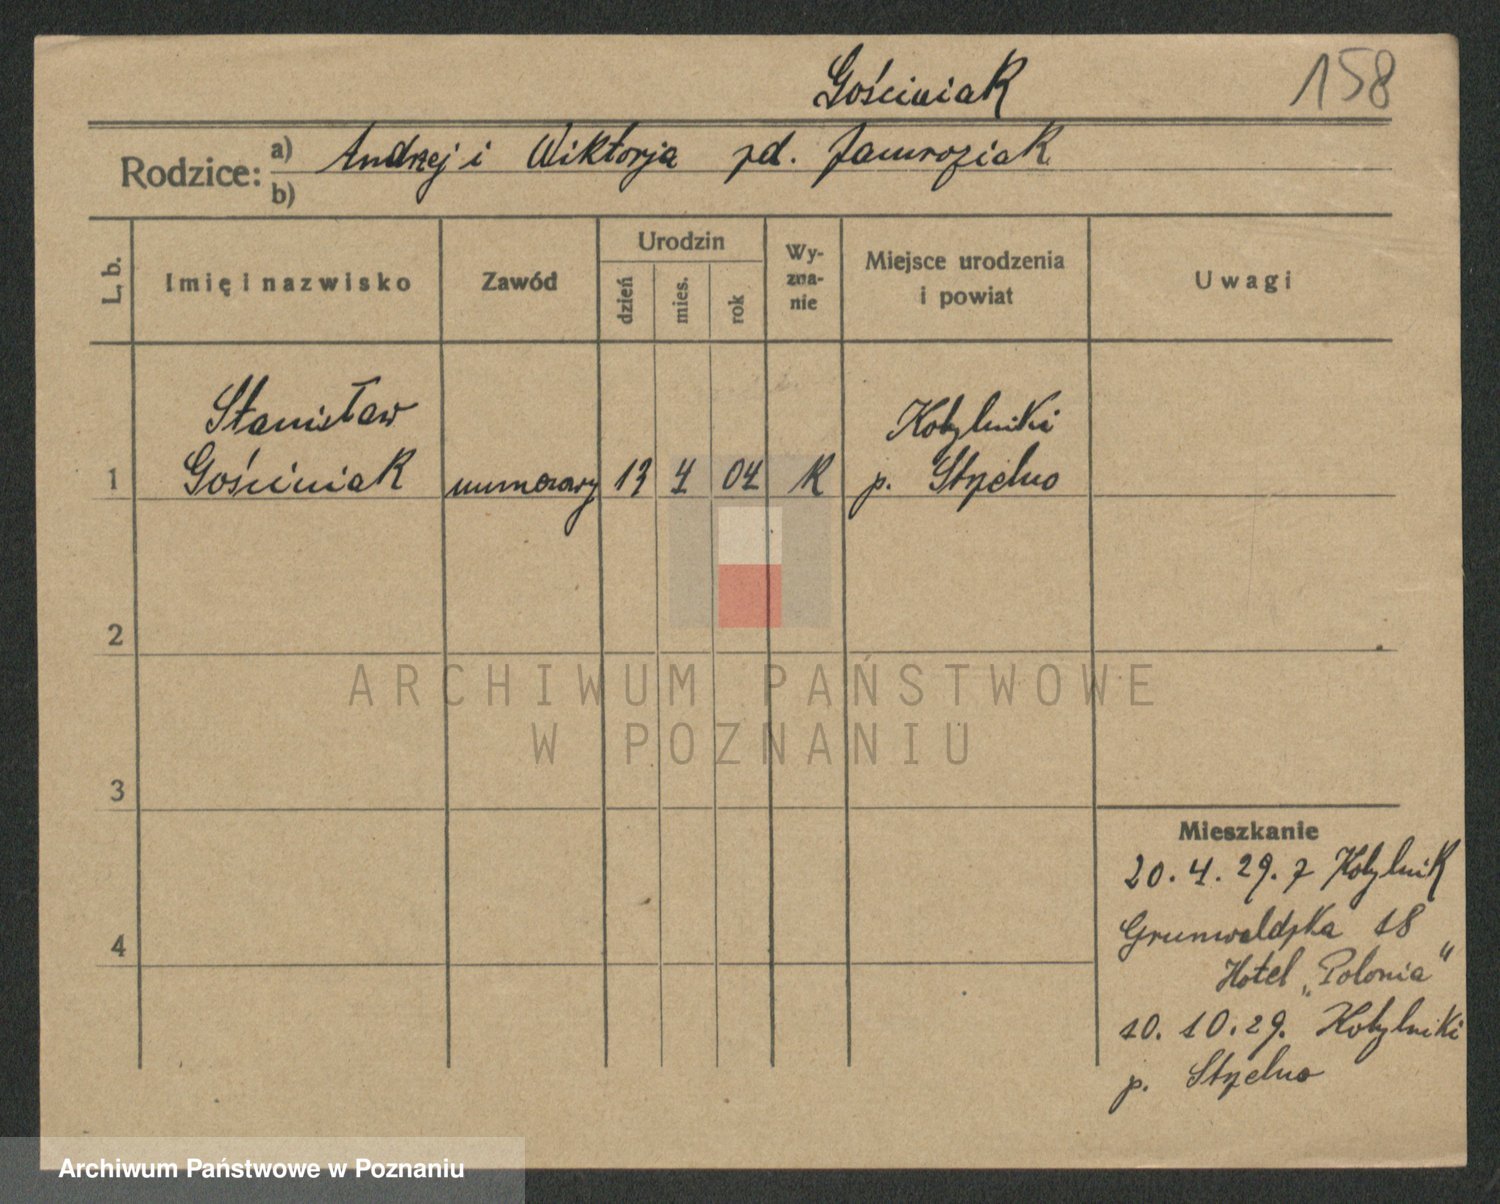 Gościniak 158
Rodzice: a) Andrzej i Wiktorja zd. Jamroziak
b)
L. b. Imię i nazwisko Zawód Urodzin dzień mies. rok Wyznanie Miejsce urodzenia i powiat Uwagi
Stanisław Kobylniki
1 Gościniak numerowy 13 4 04 R p. Strzelno
2
ARCHIWUM PAŃSTWOWE
W POZNANIU
3
Mieszkanie
20. 4. 29. z Kobylnik
4 Grunwaldzka 18
Hotel „Polonia"
10. 10. 29. Kobylniki
p. Strzelno
Archiwum Państwowe w Poznaniu